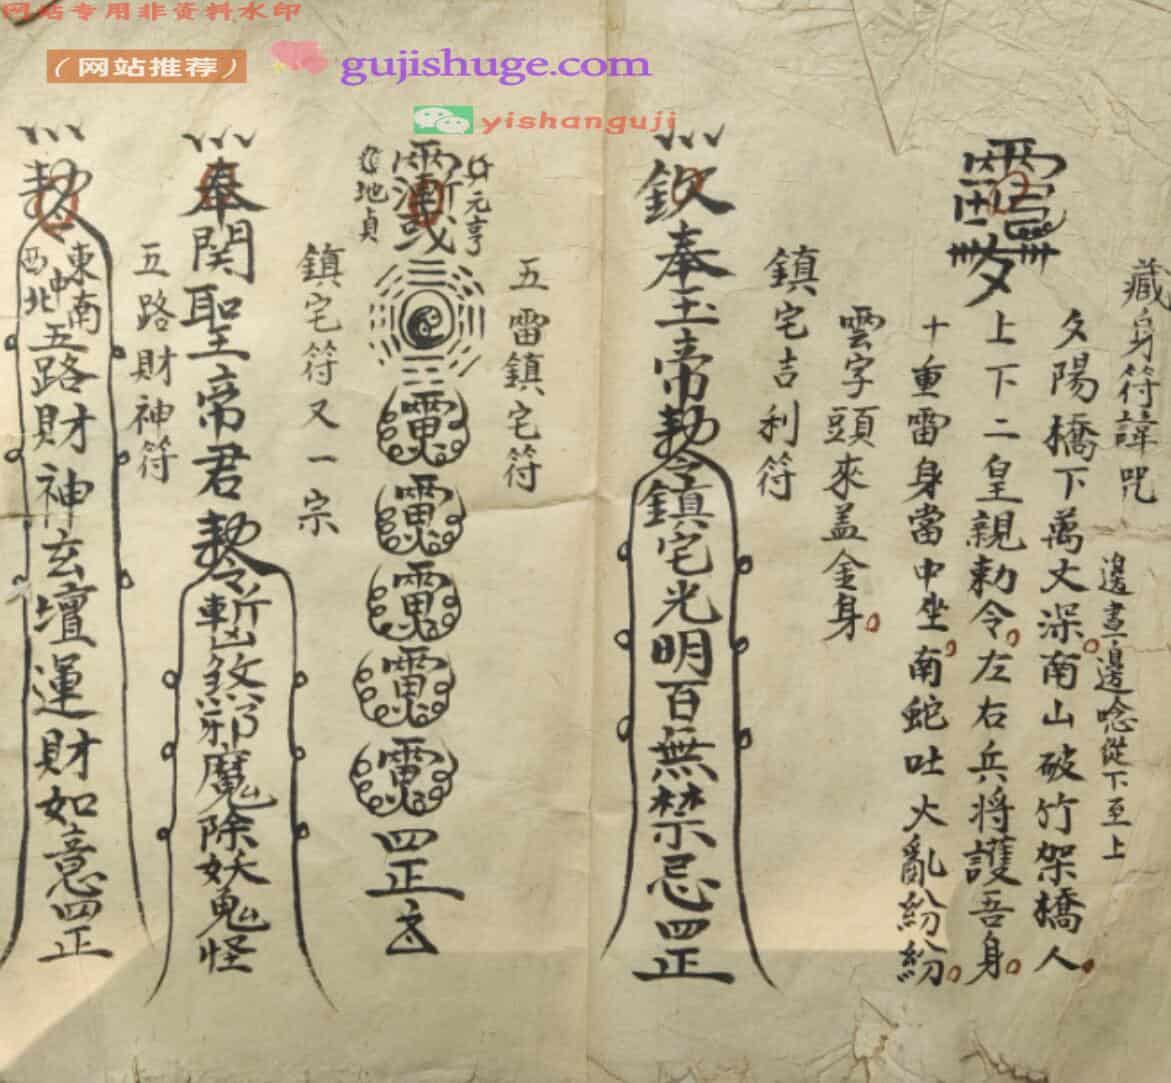 网站专用非资料水印
(网站推荐)
gujishuge.com
yishanguji
藏身符諱咒
邊畫邊唸從下至上
夕陽橋下萬丈深南山破竹架橋人
上下二皇親勅令左右兵將護吾身
十重雷身當中坐南蛇吐火亂紛紛
雲字頭來盖金身
鎮宅吉利符
欽奉玉帝勅令鎮宅光明百無禁忌四正
五雷鎮宅符
元亨
地貞
四正
鎮宅符又一宗
奉関聖帝君勅令斬煞邪魔除妖鬼怪
五路財神符
勅令
東南中西北
五路財神玄壇運財如意四正